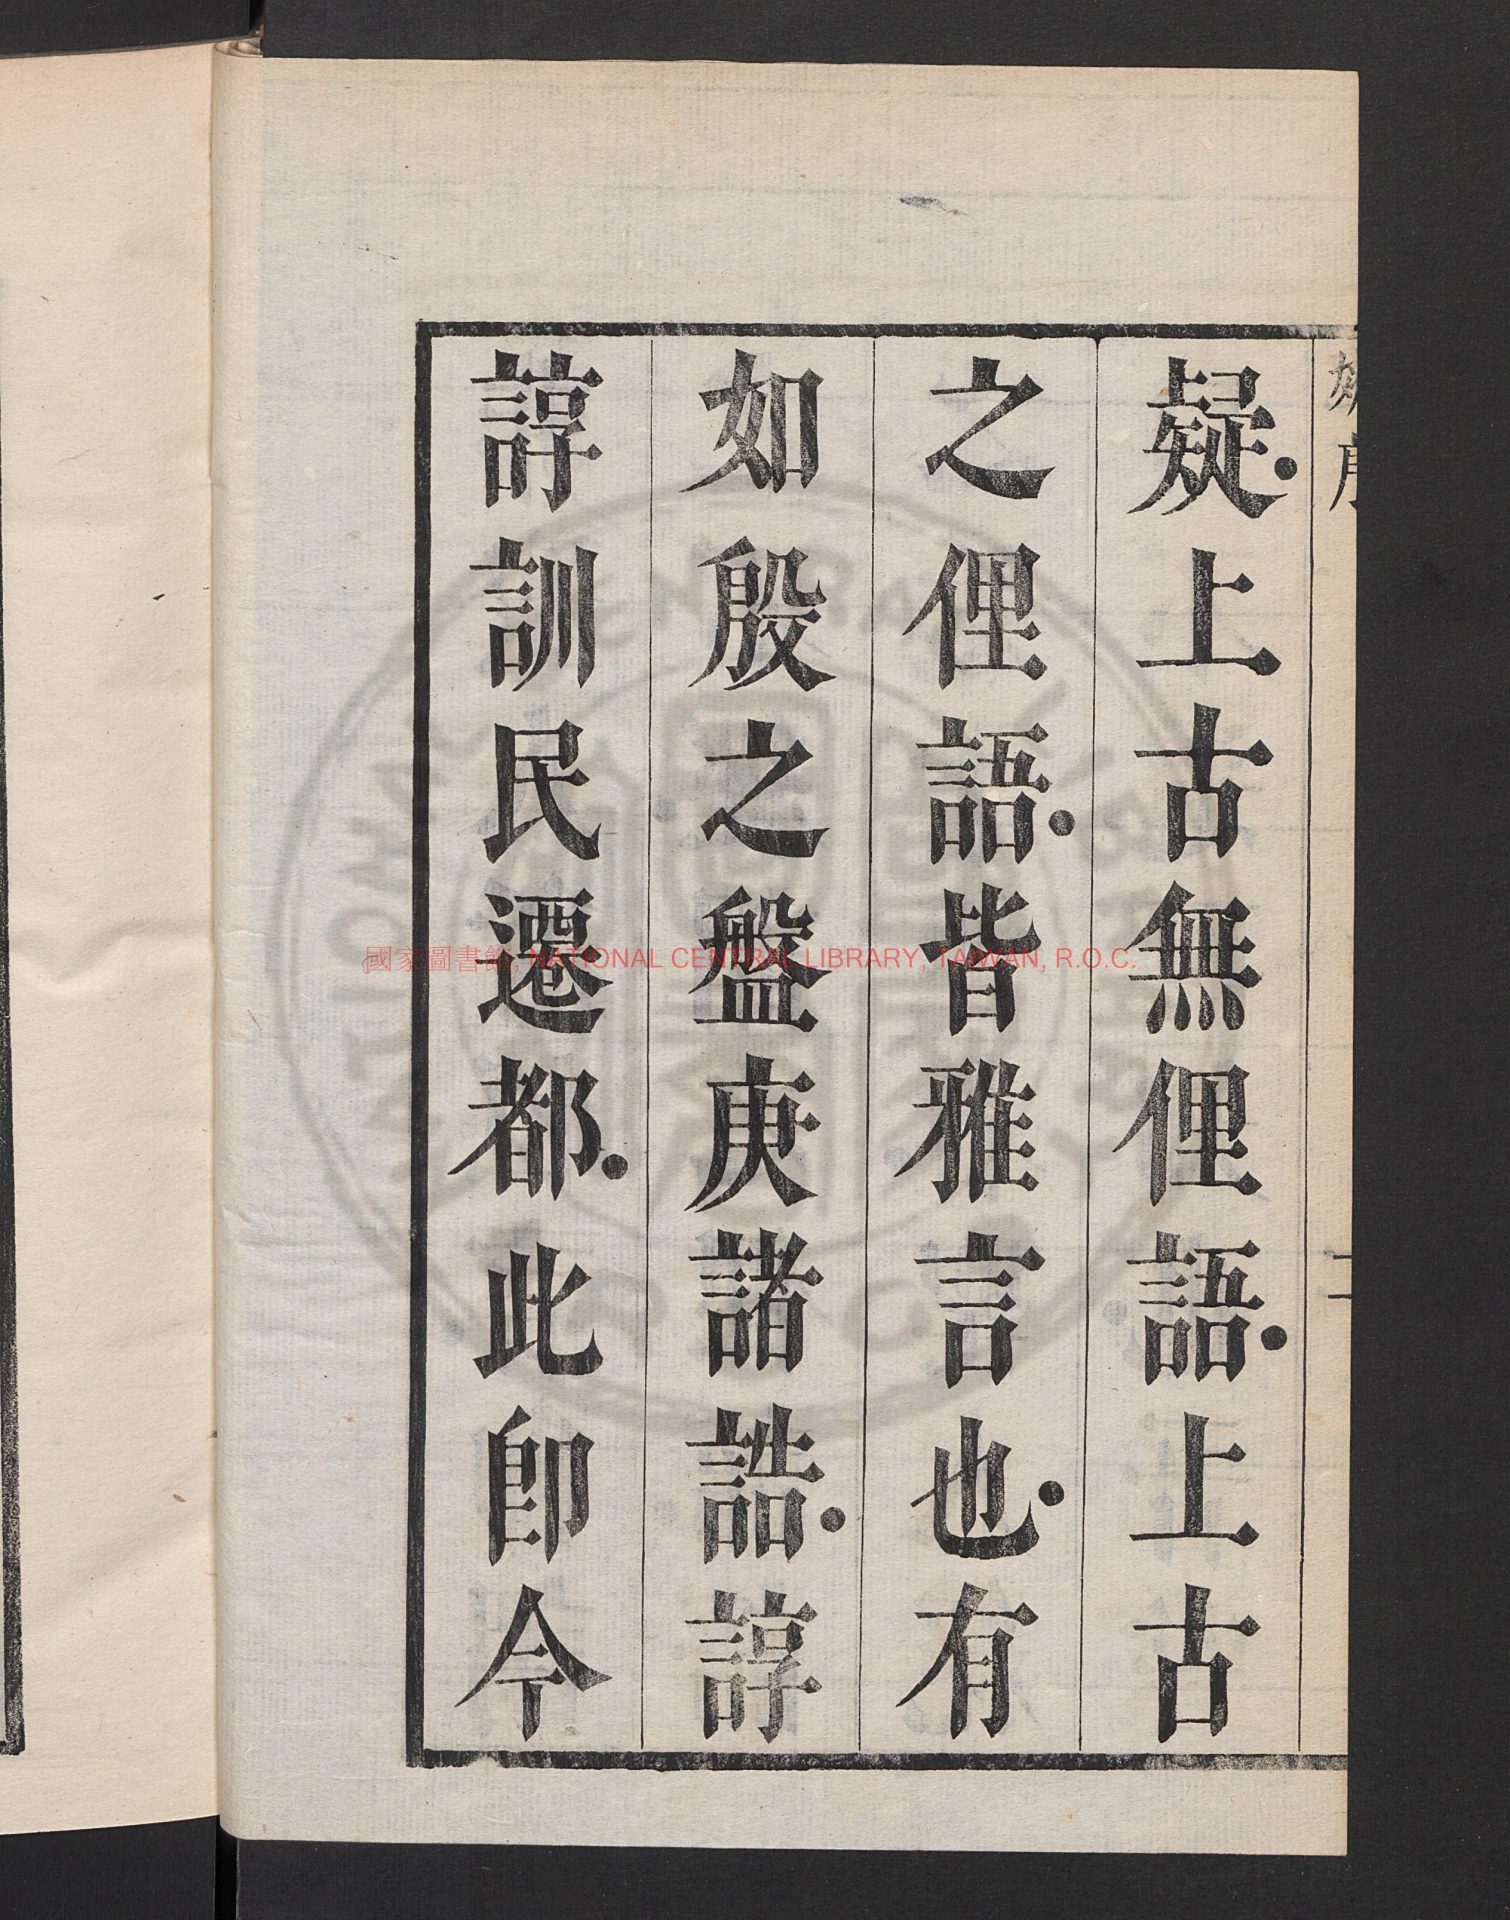 疑。上古無俚語。上古
之俚語。皆雅言也。有
如殷之盤庚諸誥。諄
諄訓民遷都。此卽今
序
二
國家圖書館, NATIONAL CENTRAL LIBRARY, TAIWAN, R.O.C.